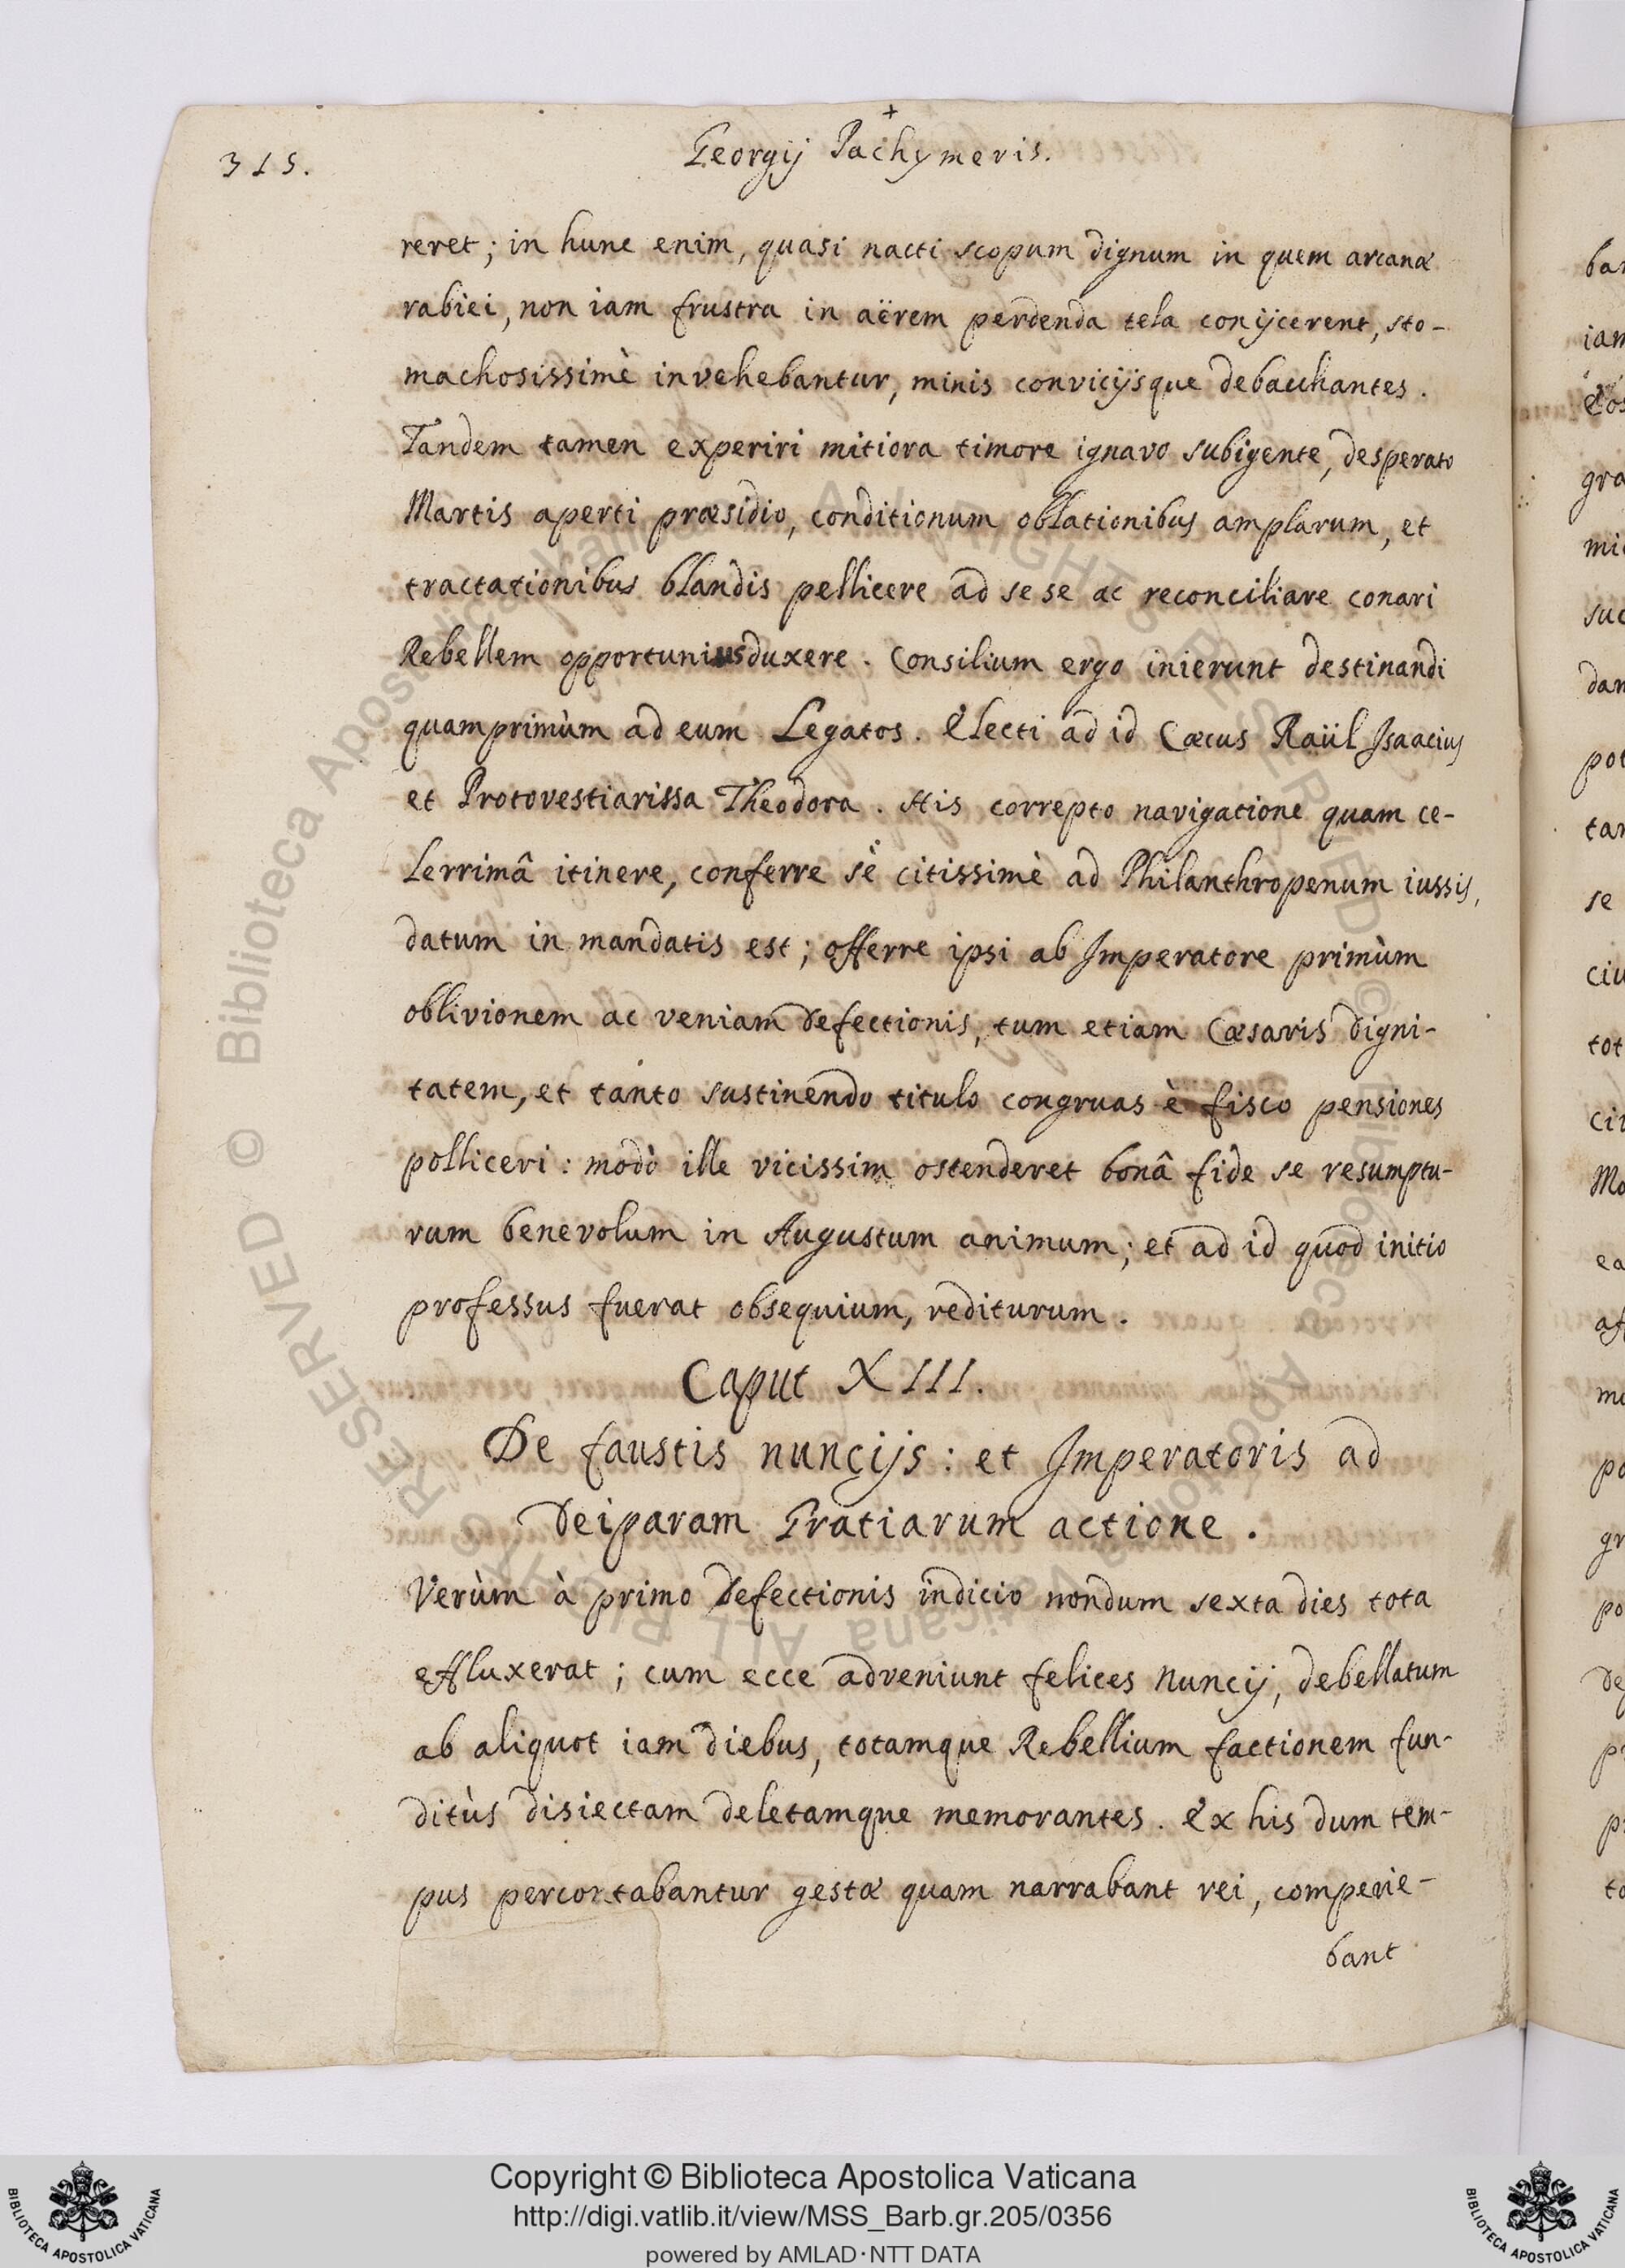 +
315.
Georgij Pachymeris.
reret; in hunc enim, quasi nacti scopum dignum in quem arcanæ
rabiei, non iam frustra in aërem perdenda tela conijcerent, sto-
machosissimè invehebantur, minis convicijsque debacchantes.
Tandem tamen experiri mitiora timore ignavo subigente, desperato
Martis aperti præsidio, conditionum oblationibus amplarum, et
tractationibus blandis pellicere ad se se ac reconciliare conari
Rebellem opportunius duxere. Consilium ergo inierunt destinandi
quamprimùm ad eum Legatos. Electi ad id Cæcus Raül Isaacius
et Protovestiarissa Theodora. His correpto navigatione quam ce-
lerrimâ itinere, conferre sè citissimè ad Philanthropenum iussis,
datum in mandatis est; offerre ipsi ab Imperatore primùm
oblivionem ac veniam defectionis, tum etiam Cæsaris digni-
tatem, et tanto sustinendo titulo congruas è fisco pensiones
polliceri: modò ille vicissim ostenderet bonâ fide se resumptu-
rum benevolum in Augustum animum; et ad id quod initio
professus fuerat obsequium, rediturum.
Caput XIII.
De faustis nuncijs: et Imperatoris ad
Deiparam Gratiarum actione.
Verùm à primo defectionis indicio nondum sexta dies tota
effluxerat; cum ecce adveniunt felices Nuncij, debellatum
ab aliquot iam diebus, totamque Rebellium factionem fun-
ditùs disiectam deletamque memorantes. Ex his dum tem-
pus percontabantur gestæ quam narrabant rei, comperie-
bant
© Biblioteca Apostolica Vaticana ALL RIGHTS RESERVED
BIBLIOTECA APOSTOLICA VATICANA
Copyright © Biblioteca Apostolica Vaticana
http://digi.vatlib.it/view/MSS_Barb.gr.205/0356
powered by AMLAD·NTT DATA
BIBLIOTECA APOSTOLICA VATICANA